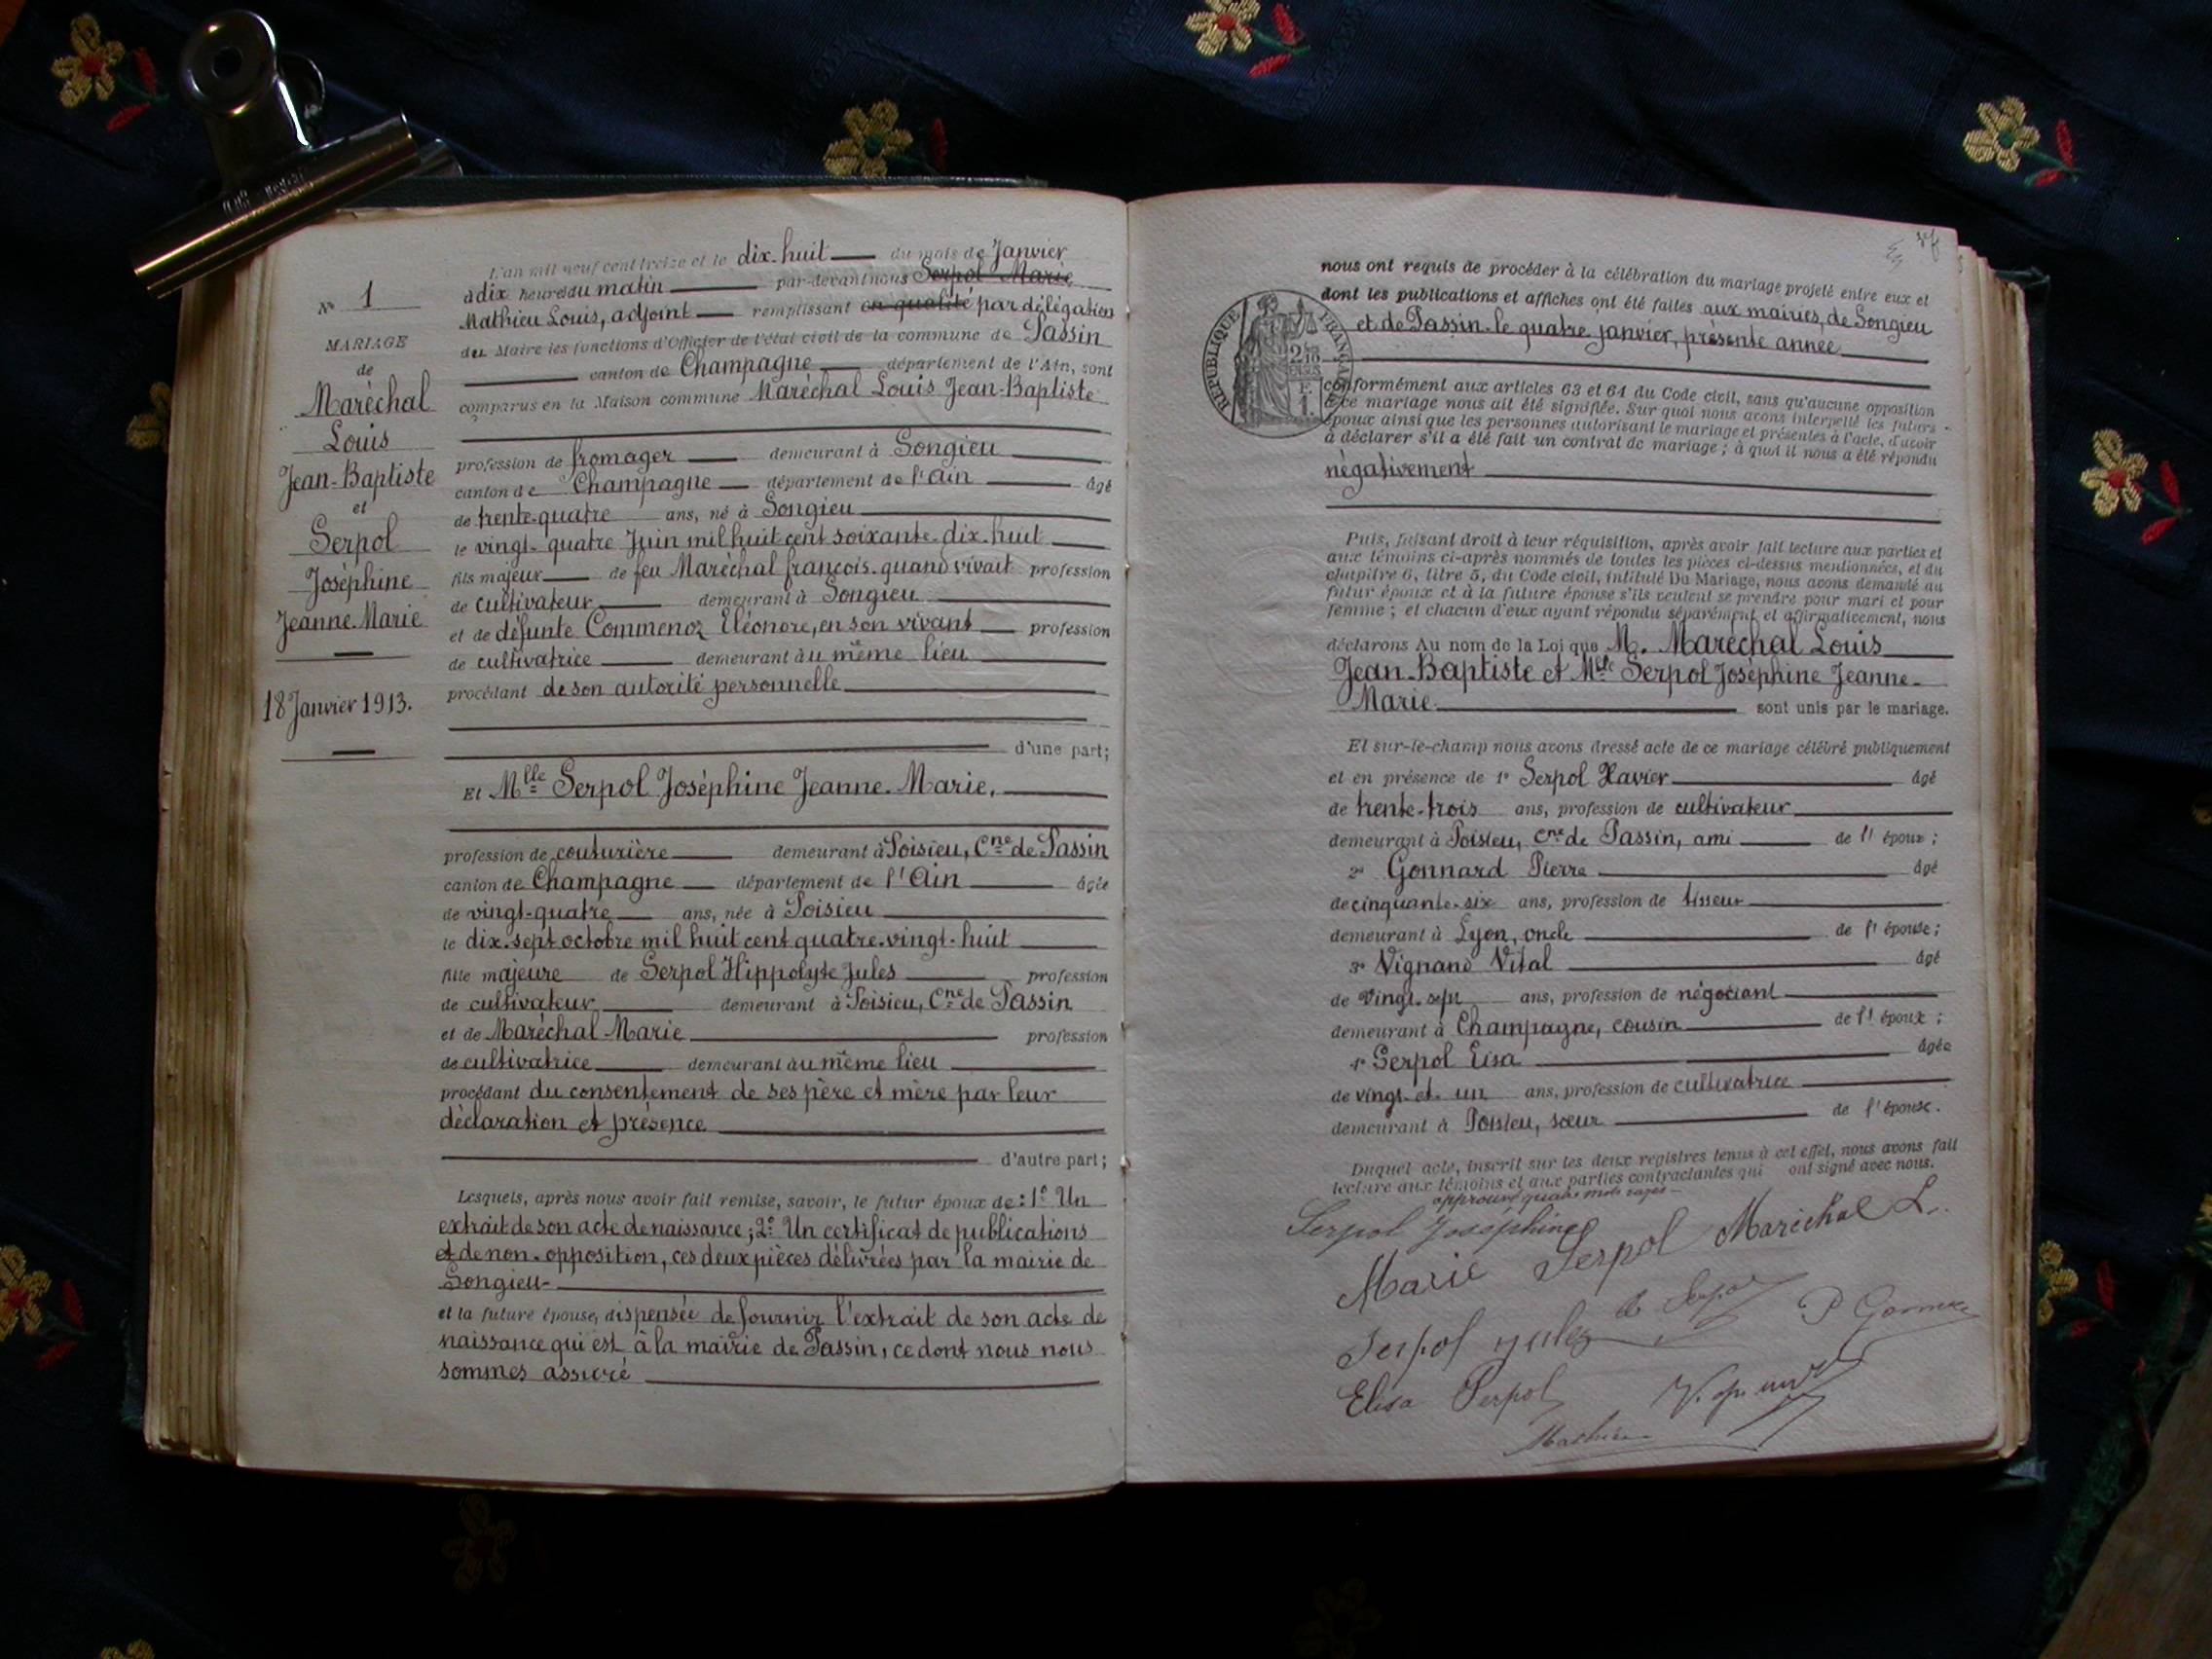 N° 1
MARIAGE
de
Maréchal
Louis
Jean-Baptiste
et
Serpol
Joséphine
Jeanne-Marie
18 Janvier 1913.
L'an mil neuf cent treize et le dix-huit du mois de Janvier
à dix heures du matin par-devant nous Serpol Marie
Mathieu Louis, adjoint remplissant en qualité par délégation
du Maire les fonctions d'Officier de l'état civil de la commune de Passin
canton de Champagne département de l'Ain, sont
comparus en la Maison commune Maréchal Louis Jean-Baptiste
profession de fromager demeurant à Songieu
canton de Champagne département de l'Ain âgé
de trente-quatre ans, né à Songieu
le vingt-quatre Juin mil huit cent soixante-dix-huit
fils majeur de feu Maréchal françois quand vivait profession
de cultivateur demeurant à Songieu
et de défunte Commenoz Eléonore, en son vivant profession
de cultivatrice demeurant au même lieu
procédant de son autorité personnelle
d'une part;
Et Mlle Serpol Joséphine Jeanne-Marie,
profession de couturière demeurant à Poisieu, Cne de Passin
canton de Champagne département de l'Ain âgée
de vingt-quatre ans, née à Poisieu
le dix-sept octobre mil huit cent quatre-vingt-huit
fille majeure de Serpol Hippolyte Jules profession
de cultivateur demeurant à Poisieu, Cne de Passin
et de Maréchal Marie profession
de cultivatrice demeurant au même lieu
procédant du consentement de ses père et mère par leur
déclaration et présence
d'autre part;
Lesquels, après nous avoir fait remise, savoir, le futur époux de : 1° Un
extrait de son acte de naissance ; 2° Un certificat de publications
et de non-opposition, ces deux pièces délivrées par la mairie de
Songieu
et la future épouse, dispensée de fournir l'extrait de son acte de
naissance qui est à la mairie de Passin, ce dont nous nous
sommes assuré
nous ont requis de procéder à la célébration du mariage projeté entre eux et
dont les publications et affiches ont été faites aux mairies, de Songieu
et de Passin le quatre janvier, présente année
RÉPUBLIQUE FRANÇAISE
conformément aux articles 63 et 64 du Code civil, sans qu'aucune opposition
à ce mariage nous ait été signifiée. Sur quoi nous avons interpellé les futurs
époux ainsi que les personnes autorisant le mariage et présentes à l'acte, d'avoir
à déclarer s'il a été fait un contrat de mariage ; à quoi il nous a été répondu
négativement
Puis, faisant droit à leur réquisition, après avoir fait lecture aux parties et
aux témoins ci-après nommés de toutes les pièces ci-dessus mentionnées, et du
chapitre 6, titre 5, du Code civil, intitulé Du Mariage, nous avons demandé au
futur époux et à la future épouse s'ils veulent se prendre pour mari et pour
femme ; et chacun d'eux ayant répondu séparément et affirmativement, nous
déclarons Au nom de la Loi que M. Maréchal Louis
Jean-Baptiste et Mlle Serpol Joséphine Jeanne-
Marie sont unis par le mariage.
Et sur-le-champ nous avons dressé acte de ce mariage célébré publiquement
et en présence de 1° Serpol Xavier âgé
de trente-trois ans, profession de cultivateur
demeurant à Poisieu, Cne de Passin, ami de l' époux ;
2° Gonnard Pierre âgé
de cinquante-six ans, profession de tisseur
demeurant à Lyon, oncle de l' épouse ;
3° Vignand Vital âgé
de vingt-sept ans, profession de négociant
demeurant à Champagne, cousin de l' époux ;
4° Serpol Elsa âgée
de vingt-et-un ans, profession de cultivatrice
demeurant à Poisieu, sœur de l'épouse.
Duquel acte, inscrit sur les deux registres tenus à cet effet, nous avons fait
lecture aux témoins et aux parties contractantes qui ont signé avec nous.
approuvé quatre mots rayés
Serpol Joséphine
Maréchal L.
Marie Serpol
Serpol Jules
P Gonnard
Elisa Serpol
Mathieu